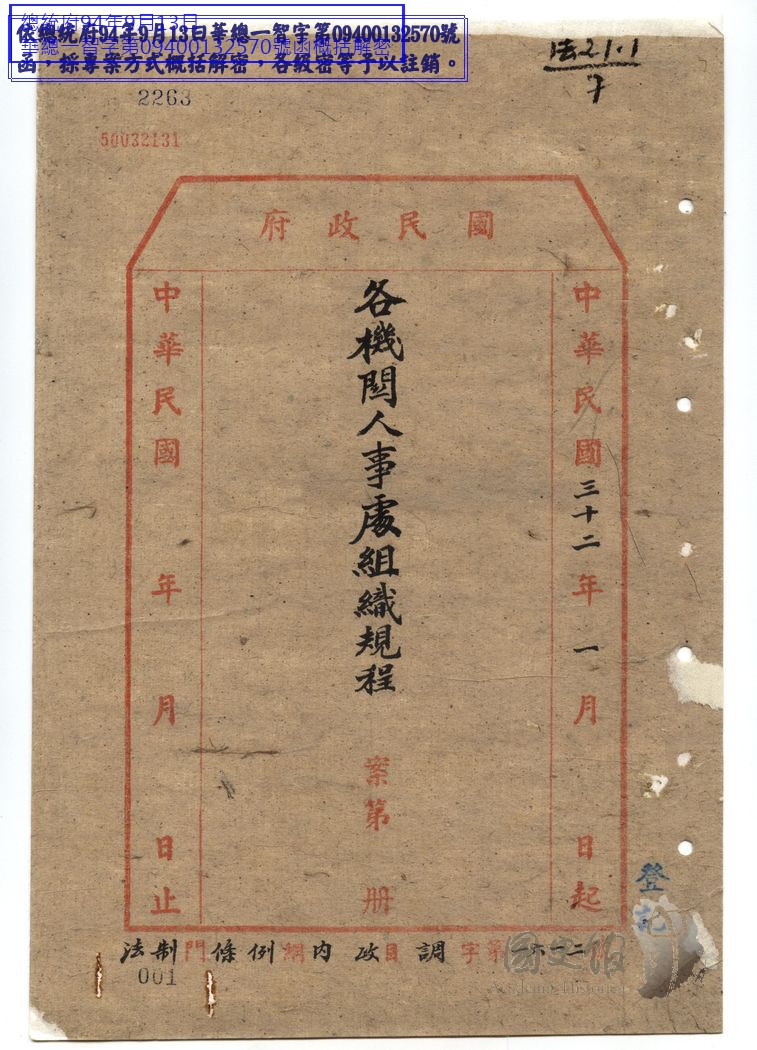 總統府94年9月13日
華總一智字第09400132570號函概括解密
依總統府94年9月13日華總一智字第09400132570號
函，採專案方式概括解密，各級密等予以註銷。
法21.1
7
2263
50032131
國民政府
中華民國三十二年一月 日起
各機関人事處組織規程
案第 册
中華民國 年 月 日止
法制門條例綱內政目調字第 六一二
001
登記
國史館
Academia Historica